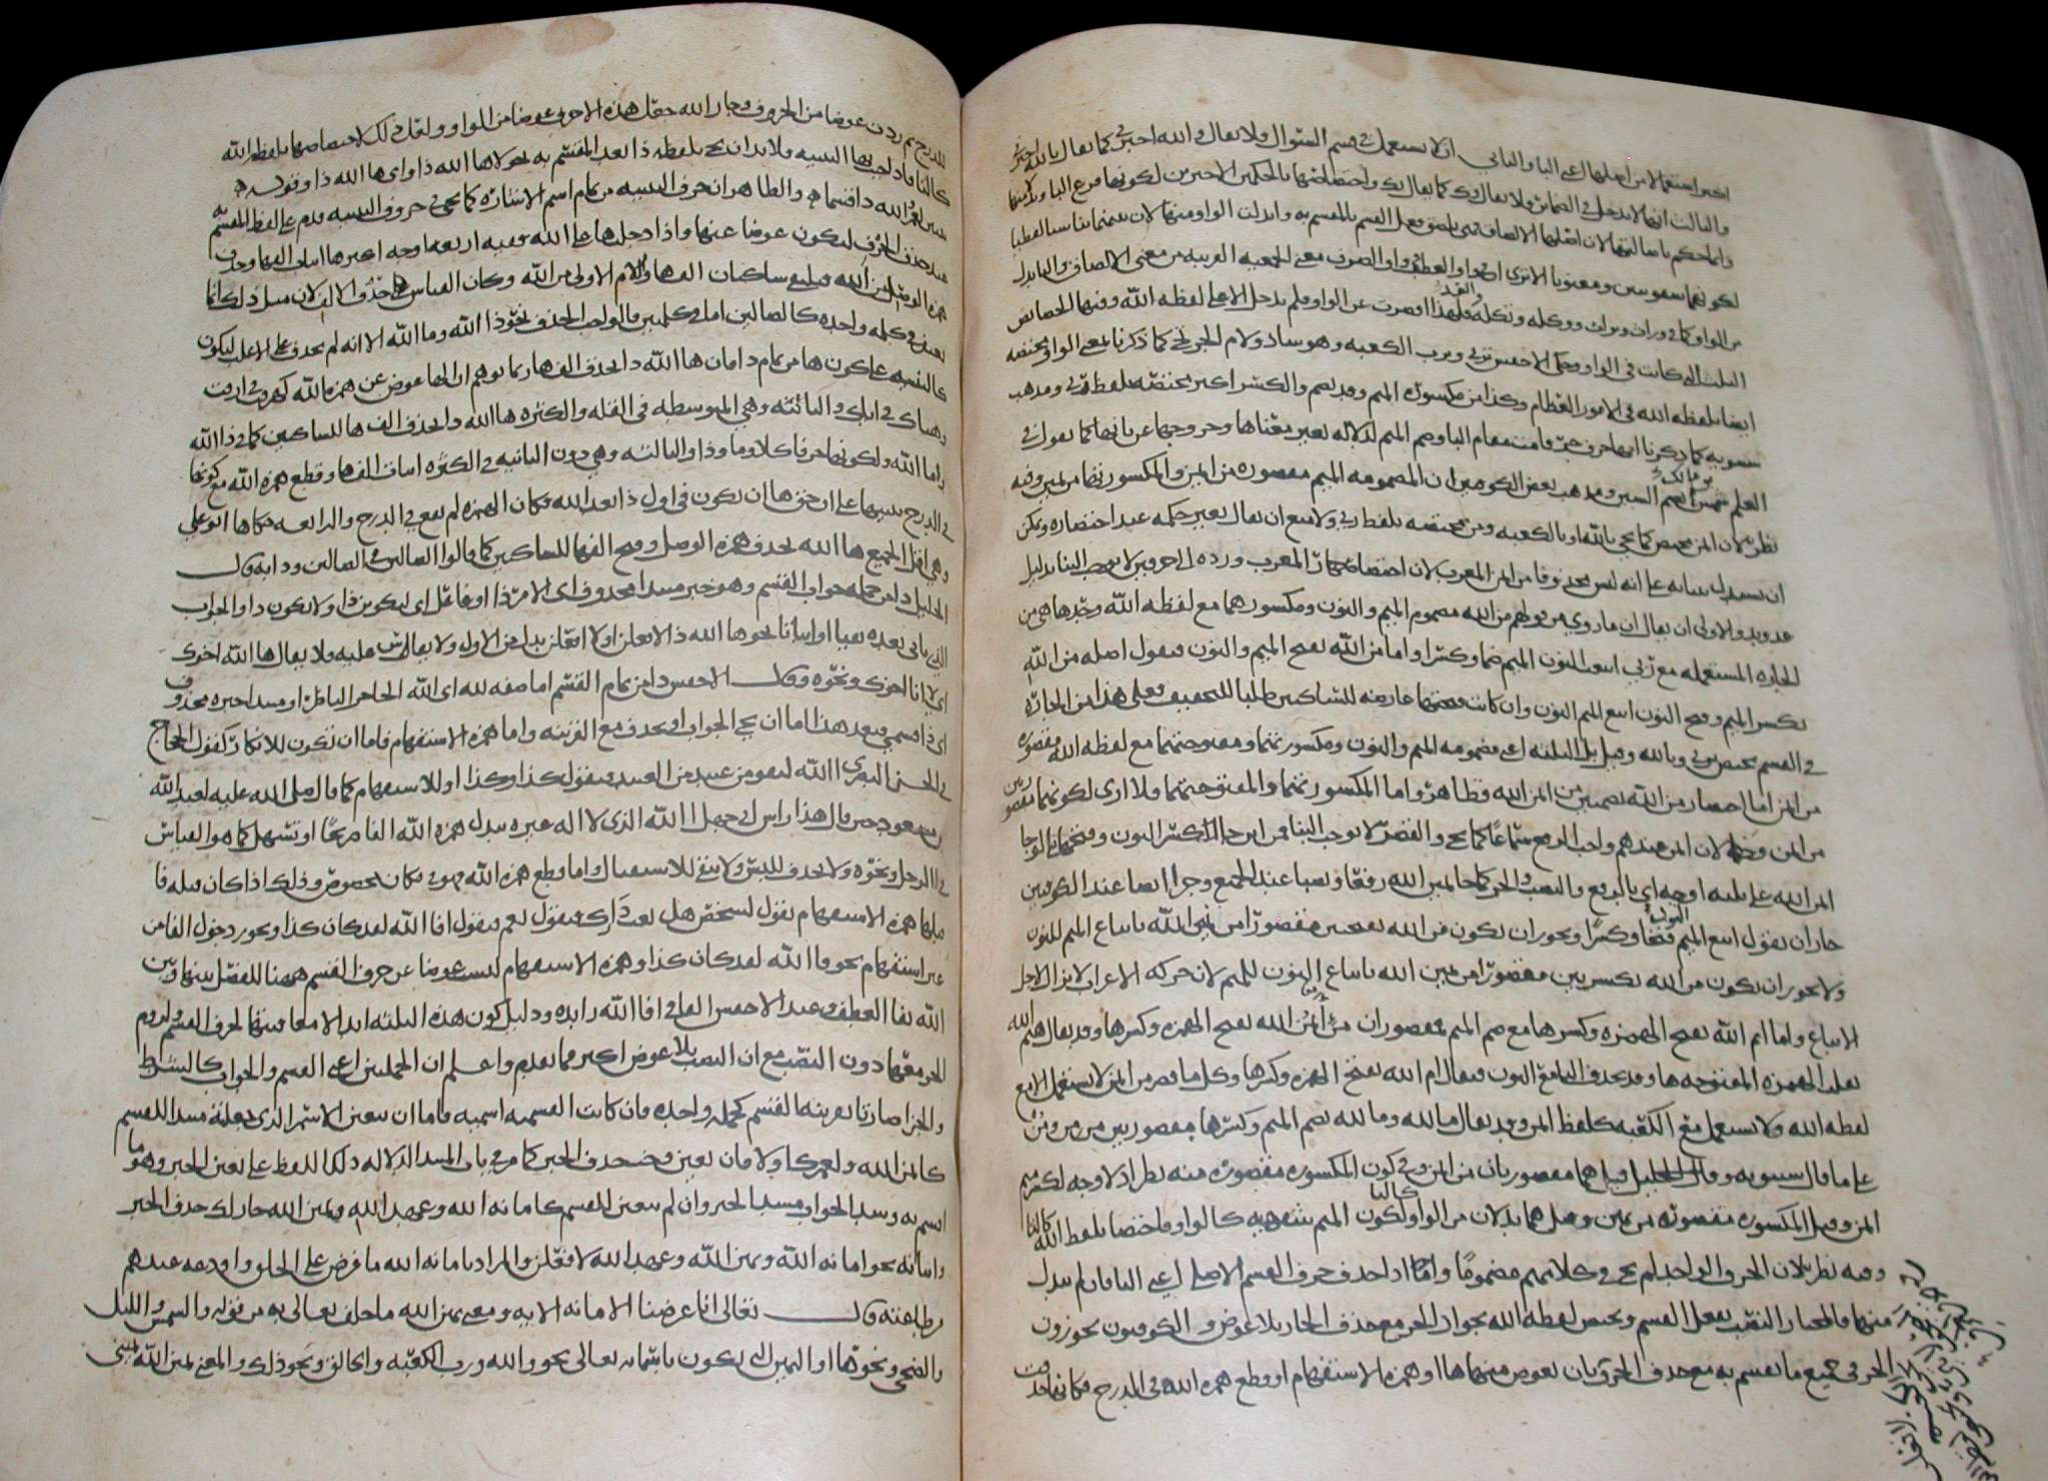 اكثر استعمالا من اصلها اعني البا والثاني ان لا تستعمل في قسم السؤال ولا يقال والله اخبرني كما يقال بالله اخبرني
والثالث انها لا تدخل في الضمائر ولا يقال وك كما يقال بك واختصاصها بالحكمين الاخيرين لكونها فرع البا
وانما حكم باصالتها لان اصلها الالصاق فهي تلصق فعل القسم بالمقسم به وابدلت الواو منها لان بينهما تناسبا لفظيا
لكونهما شفويتين ومعنويا الا ترى ان في واو العطف وواو الصرف معنى الجمعية القريبة من معنى الالصاق والتا بدل
من الواو كما في وراث وتراث ووكلة وتكلة فلهذا قصرت عن الواو فلم تدخل الا على لفظة الله وفيها الخصائص
الثلث التي كانت في الواو وحكى الاخفش تربي وترب الكعبة وهو شاذ ولام الجر تجي كما ذكرنا بمعنى الواو مختصة
ايضا بلفظة الله في الامور العظام وكذا من مكسورة الميم وقد تضم والكسر اكثر مختصة بلفظ ربي ومذهب
سيبويه كما ذكرنا انها حرف جر قامت مقام البا وضم الميم لدلالة تغيير معناها وخروجها عن بابها كما يقول في
العلم شمس بن مالك بضم السين ومذهب بعض الكوفيين ان المضمومة الميم مقصورة من ايمن والمكسورتها من يمين وفيه
نظر لان ايمن مختص كما يجي بالله او بالكعبة ومن مختصة بلفظ ربي ولا يمنع ان يقال تغير حكمه عند اختصاره ويمكن
ان يستدل ببنائه على انه ليس محذوفا من ايمن المعرب لان اختصار المعرب ورده الى حرفين لا يوجب البنا بدليل
يد ودم والاولى ان يقال ان ما روي من قولهم من الله مضموم الميم والنون ومكسورهما مع لفظة الله وحدها هي من
الجارة المستعملة مع ربي اتبعت النون الميم ضما وكسرا واما من الله بفتح الميم والنون فنقول اصله من الله
بكسر الميم وفتح النون اتبع الميم النون وان كانت فتحتها عارضة للساكنين طلبا للتخفيف فعلى هذا من الجارة
في القسم تختص بربي وبالله وقيل بل الثلثة اعني مضمومة الميم والنون ومكسورتهما ومفتوحتهما مع لفظة الله مقصورة
من ايمن اما اختصار من الله بضمتين من ايمن الله فظاهر واما المكسورتهما والمفتوحتهما فلا ارى لكونهما مقصورتين
من ايمن وجها لان ايمن عندهم واجب الرفع سماعا كما يجي والقصر لا يوجب البنا
ايمن الله على ثلثة اوجه اي بالرفع والنصب والجر كما جا يمين الله رفعا ونصبا عند الجميع وجرا ايضا عند الكوفيين
جاز ان نقول اتبع الميم النون فتحا وكسرا ويجوز ان تكون من الله بفتحتين مقصورا من يمين الله باتباع الميم للنون
ولا يجوز ان يكون من الله بكسرتين مقصورا من يمين الله باتباع النون للميم لان حركة الاعراب لا تزال لاجل
الاتباع واما ايم الله بفتح الهمزة وكسرها مع ضم الميم فمقصوران من ايمن الله بفتح الهمزة وكسرها وقد يقال هيم الله
بقلب الهمزة المفتوحة ها وقد تحذف اليا مع النون فيقال ام الله بفتح الهمزة وكسرها وكل ما قصر من ايمن لا يستعمل الا مع
لفظة الله ولا يستعمل مع الكعبة كلفظ ايمن وقد يقال م الله وم الله بضم الميم وكسرها مقصورين من من ومن
على ما قال سيبويه وقال الخليل قيل هما مقصورتان من ايمن وفي كون المكسورة مقصورة منه نظر اذ لا وجه لكسر ميم
ايمن وقيل المكسورة مقصورة من يمين وقيل هما بدلان من الواو لكون الميم شفهية كالواو فاختصا بلفظ الله كالتا
وفيه نظر لان الحروف الواحد لم يجي في كلامهم مضموما واذا حذف حرف القسم الاصلي اعني البا فان لم يبدل
منها فالمختار النصب بفعل القسم ويختص لفظة الله بجواز الجر مع حذف الجار بلا عوض والكوفيون يجوزون
الجر في جميع ما يقسم به مع حذف الجر وان بان يعوض منها ها او همزة الاستفهام او قطع همزة الله في الدرج فكانها حذفت
للدرج ثم ردت عوضا من الحروف وجار الله جعل هذه الاحرف عوضا من الواو ولعل ذلك لاختصاصها بلفظة الله
كالتا فاذا جئت بها التنبيه فلا بد ان تجي بلفظة ذا بعد المقسم به نحو لاها الله ذا واي ها الله ذا وقوله
تعلمن ها لعمر الله ذا قسما والظاهر ان حرف التنبيه من تمام اسم الاشارة كما يجي في حروف التنبيه قدم على لفظ المقسم به
عند حذف الحرف ليكون عوضا عنها واذا دخلت ها على الله ففيه اربعة اوجه اكثرها اثبات الفها وحذف
همزة الوصل من الله فيلتقي ساكنان الف ها واللام الاولى من الله وكان القياس حذف الالف لان مثل ذلك انما
يغتفر في كلمة واحدة كالضالين اما في كلمتين فالواجب الحذف نحو ذا الله وما الله الا انه لم يحذف في الاغلب ليكون
كالتنبيه على كون ها من تمام ذا فان ها الله ذا بحذف الف ها ربما يوهم ان الها عوض عن همزة الله كهرقت في ارقت
وهياك في اياك والثانية وهي المتوسطة في القلة والكثرة ها الله ذا بحذف الف ها للساكنين كما في ذا الله
وما الله ولكونها حرفا كلا وما وذا والثالثة وهي دون الثانية في الكثرة اثبات الف ها وقطع همزة الله مع كونها
في الدرج تنبيها على ان حق ها ان تكون في اول ذا بعد الله فكان الهمزة لم تقع في الدرج والرابعة حكاها ابو علي
وهي اقل الجميع ها الله بحذف همزة الوصل وفتح الفها للساكنين كما قالوا الضالين ودابة قال
الخليل ذا من جملة جواب القسم وهو خبر مبتدا محذوف اي الامر ذا او فاعل اي ليكونن ذا او لا يكون ذا والجواب
الذي ياتي بعده نفيا او اثباتا نحو ها الله ذا لا تفعلن او لا افعلن بدل من الاول ولا يقاس عليه فلا يقال ها الله اخوك
اي لانا اخوك ونحوه وقال الاخفش ذا من تمام القسم اما صفة لله اي الله الحاضر الناظر او مبتدا خبره محذوف
اي ذا قسمي فبعد هذا اما ان يجي الجواب او يحذف مع القرينة واما همزة الاستفهام فاما ان تكون للانكار كقول الحجاج
في الحسن البصري االله ليقومن عبد من العبيد فيقول كذا وكذا او للاستفهام كما قال صلى الله عليه لعبد الله
بن مسعود حين قال هذا راس ابي جهل االله الذي لا اله غيره تبدل همزة الله الفا صريحا او تسهل كما هو القياس
في االرجل ونحوه ولا تحذف للبس ولا تبقى للاستثقال واما قطع همزة الله
قبلها همزة الاستفهام يقول لشخص هل بعت دارك فيقول نعم فيقول افا الله لقد كان كذا ويجوز دخول الفا من
غير استفهام نحو فا الله لقد كان كذا وهمزة الاستفهام ليست عوضا عن حرف القسم ههنا للفصل بينها وبين
الله بفا العطف وعند الاخفش الفا في افا الله زايدة ودليل كون هذه الثلثة ابدالا معاقبتها لحرف القسم ولزوم
الجر معها دون النصب مع ان النصب بلا عوض اكثر كما تقدم واعلم ان الجملتين اعني القسم والجواب كالشرط
والجزا صارتا بقرينة القسم كجملة واحدة فان كانت القسمية اسمية فاما ان يتعين الاسم الذي جعلته مبتدا للقسم
كايمن الله ولعمرك او لا فان تعين وجب حذف الخبر كما مر في باب المبتدا لدلالة ذلك اللفظ على تعين الخبر وهو ما
اقسم به وسد الجواب مسد الخبر وان لم يتعين للقسم كامانة الله وعهد الله ويمين الله جاز لك حذف الخبر
واثباته نحو امانة الله ويمين الله وعهد الله لافعلن والمراد بامانة الله ما فرض على الخلق واودعه عندهم
من طاعته قال تعالى انا عرضنا الامانة الاية ومعنى يمين الله ما حلف تعالى به من قوله والشمس والليل
والضحى ونحوها او اليمين التي يكون باسمائه تعالى نحو والله ورب الكعبة والخالق ونحو ذلك والمعنى يمين الله يميني